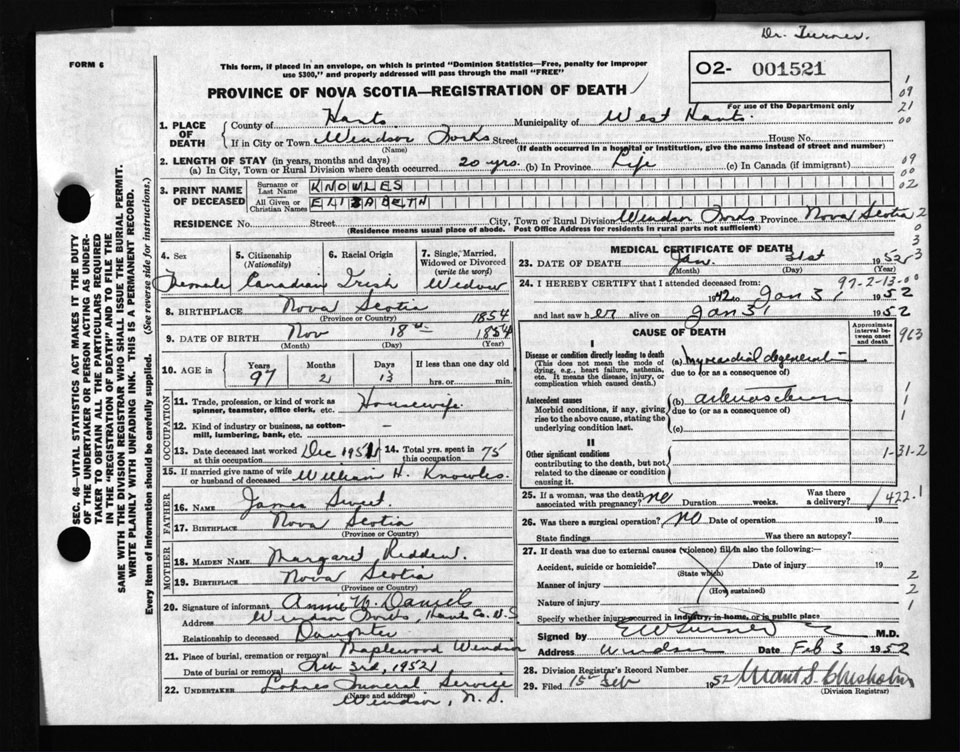 Dr. Turner.
FORM 6
This form, if placed in an envelope, on which is printed "Dominion Statistics—Free, penalty for improper
use $300," and properly addressed will pass through the mail "FREE"
O2- 001521
PROVINCE OF NOVA SCOTIA—REGISTRATION OF DEATH
For use of the Department only
1. PLACE OF DEATH
County of Hants Municipality of West Hants.
If in City or Town Windsor Forks Street House No.
(Name) (If death occurred in a hospital or institution, give the name instead of street and number)
2. LENGTH OF STAY (in years, months and days)
(a) In City, Town or Rural Division where death occurred 20 yrs. (b) In Province Life (c) In Canada (if immigrant)
3. PRINT NAME OF DECEASED
Surname or Last Name KNOWLES
All Given or Christian Names ELIZABETH
RESIDENCE No. Street City, Town or Rural Division Windsor Forks Province Nova Scotia
(Residence means usual place of abode. Post Office Address for residents in rural parts not sufficient)
4. Sex Female
5. Citizenship (Nationality) Canadian
6. Racial Origin Irish
7. Single, Married, Widowed or Divorced (write the word) Widow
8. BIRTHPLACE Nova Scotia
(Province or Country) 1854
9. DATE OF BIRTH Nov 18 1854
(Month) (Day) (Year)
10. AGE in Years 97 Months 2 Days 13 If less than one day old hrs. or min.
OCCUPATION
11. Trade, profession, or kind of work as spinner, teamster, office clerk, etc. Housewife
12. Kind of industry or business, as cotton-mill, lumbering, bank, etc. —
13. Date deceased last worked at this occupation Dec 1951 14. Total yrs. spent in this occupation 75
15. If married give name of wife or husband of deceased William H. Knowles
FATHER
16. Name James Sweet
17. Birthplace Nova Scotia
(Province or Country)
MOTHER
18. MAIDEN NAME Margaret Redden.
19. BIRTHPLACE Nova Scotia
(Province or Country)
20. Signature of informant Annie M. Daniels
Address Windsor Forks, Hants Co. N.S
Relationship to deceased Daughter
21. Place of burial, cremation or removal Maplewood Windsor
Date of burial or removal Feb 3rd, 1952
22. UNDERTAKER Lohnes Funeral Service
(Name and address)
Windsor, N.S.
MEDICAL CERTIFICATE OF DEATH
23. DATE OF DEATH Jan. 31st 1952
(Month) (Day) (Year)
24. I HEREBY CERTIFY that I attended deceased from: 97-2-13-00
1942 to Jan 31 1952
and last saw her alive on Jan 31 1952
CAUSE OF DEATH
Approximate interval between onset and death
I
Disease or condition directly leading to death
(This does not mean the mode of dying, e.g., heart failure, asthenia, etc. It means the disease, injury, or complication which caused death.)
(a) Myocardial degenerat—
due to (or as a consequence of)
Antecedent causes
Morbid conditions, if any, giving rise to the above cause, stating the underlying condition last.
(b)
due to (or as a consequence of)
(c)
II
Other significant conditions
contributing to the death, but not related to the disease or condition causing it.
1-31-2
25. If a woman, was the death associated with pregnancy? no Duration weeks. Was there a delivery? 422.1
26. Was there a surgical operation? NO Date of operation 19
State findings Was there an autopsy?
27. If death was due to external causes (violence) fill in also the following:
Accident, suicide or homicide? Date of injury 19
(State which)
Manner of injury
(How sustained)
Nature of injury
Specify whether injury occurred in industry, in home, or in public place
Signed by E W Turner M.D.
Address Windsor Date Feb 3 1952
28. Division Registrar's Record Number
29. Filed 15th Feb 1952 Grant S. Chisholm
(Division Registrar)
SEC. 46—VITAL STATISTICS ACT MAKES IT THE DUTY
OF THE UNDERTAKER OR PERSON ACTING AS UNDER-
TAKER TO OBTAIN ALL THE PARTICULARS REQUIRED
IN THE "REGISTRATION OF DEATH" AND TO FILE THE
SAME WITH THE DIVISION REGISTRAR WHO SHALL ISSUE THE BURIAL PERMIT.
WRITE PLAINLY WITH UNFADING INK. THIS IS A PERMANENT RECORD.
Every item of information should be carefully supplied. (See reverse side for instructions.)